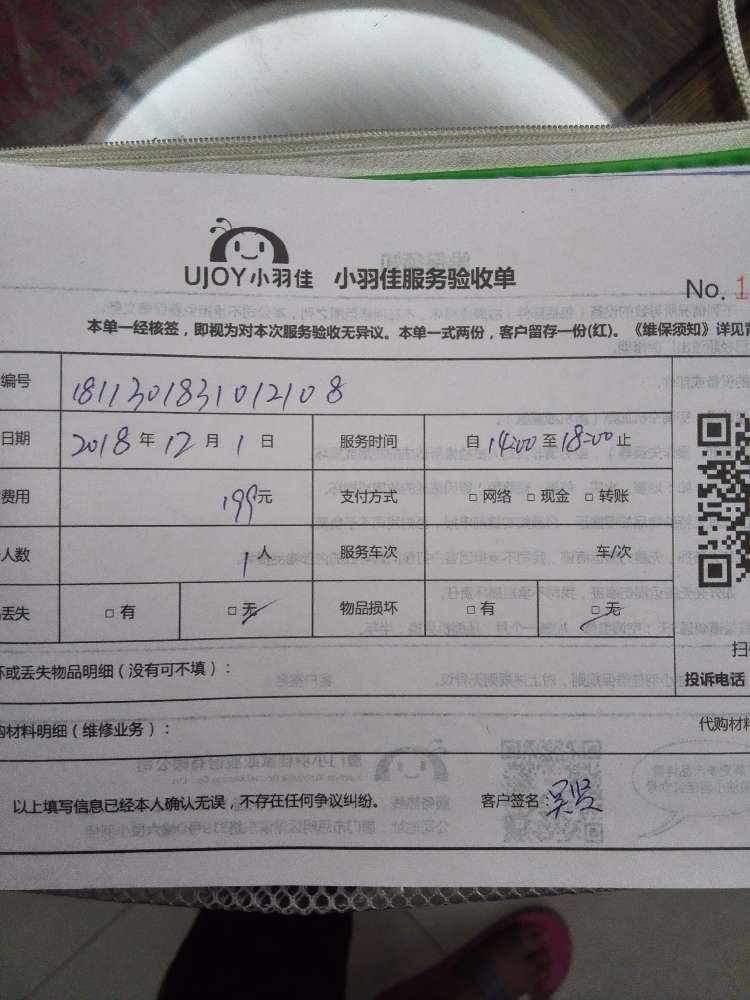 UJOY小羽佳 小羽佳服务验收单
No. 1
本单一经核签，即视为对本次服务验收无异议。本单一式两份，客户留存一份(红)。《维保须知》详见背
编号 1811301831012108
日期 2018 年 12 月 1 日 服务时间 自 14:00 至 18:00 止
费用 199元 支付方式 □ 网络 □ 现金 □ 转账
人数 1 人 服务车次 车/次
丢失 □ 有 □ 无 物品损坏 □ 有 □ 无
坏或丢失物品明细（没有可不填）：
扫
投诉电话
购材料明细（维修业务）：
代购材料
以上填写信息已经本人确认无误，不存在任何争议纠纷。 客户签名：吴贤